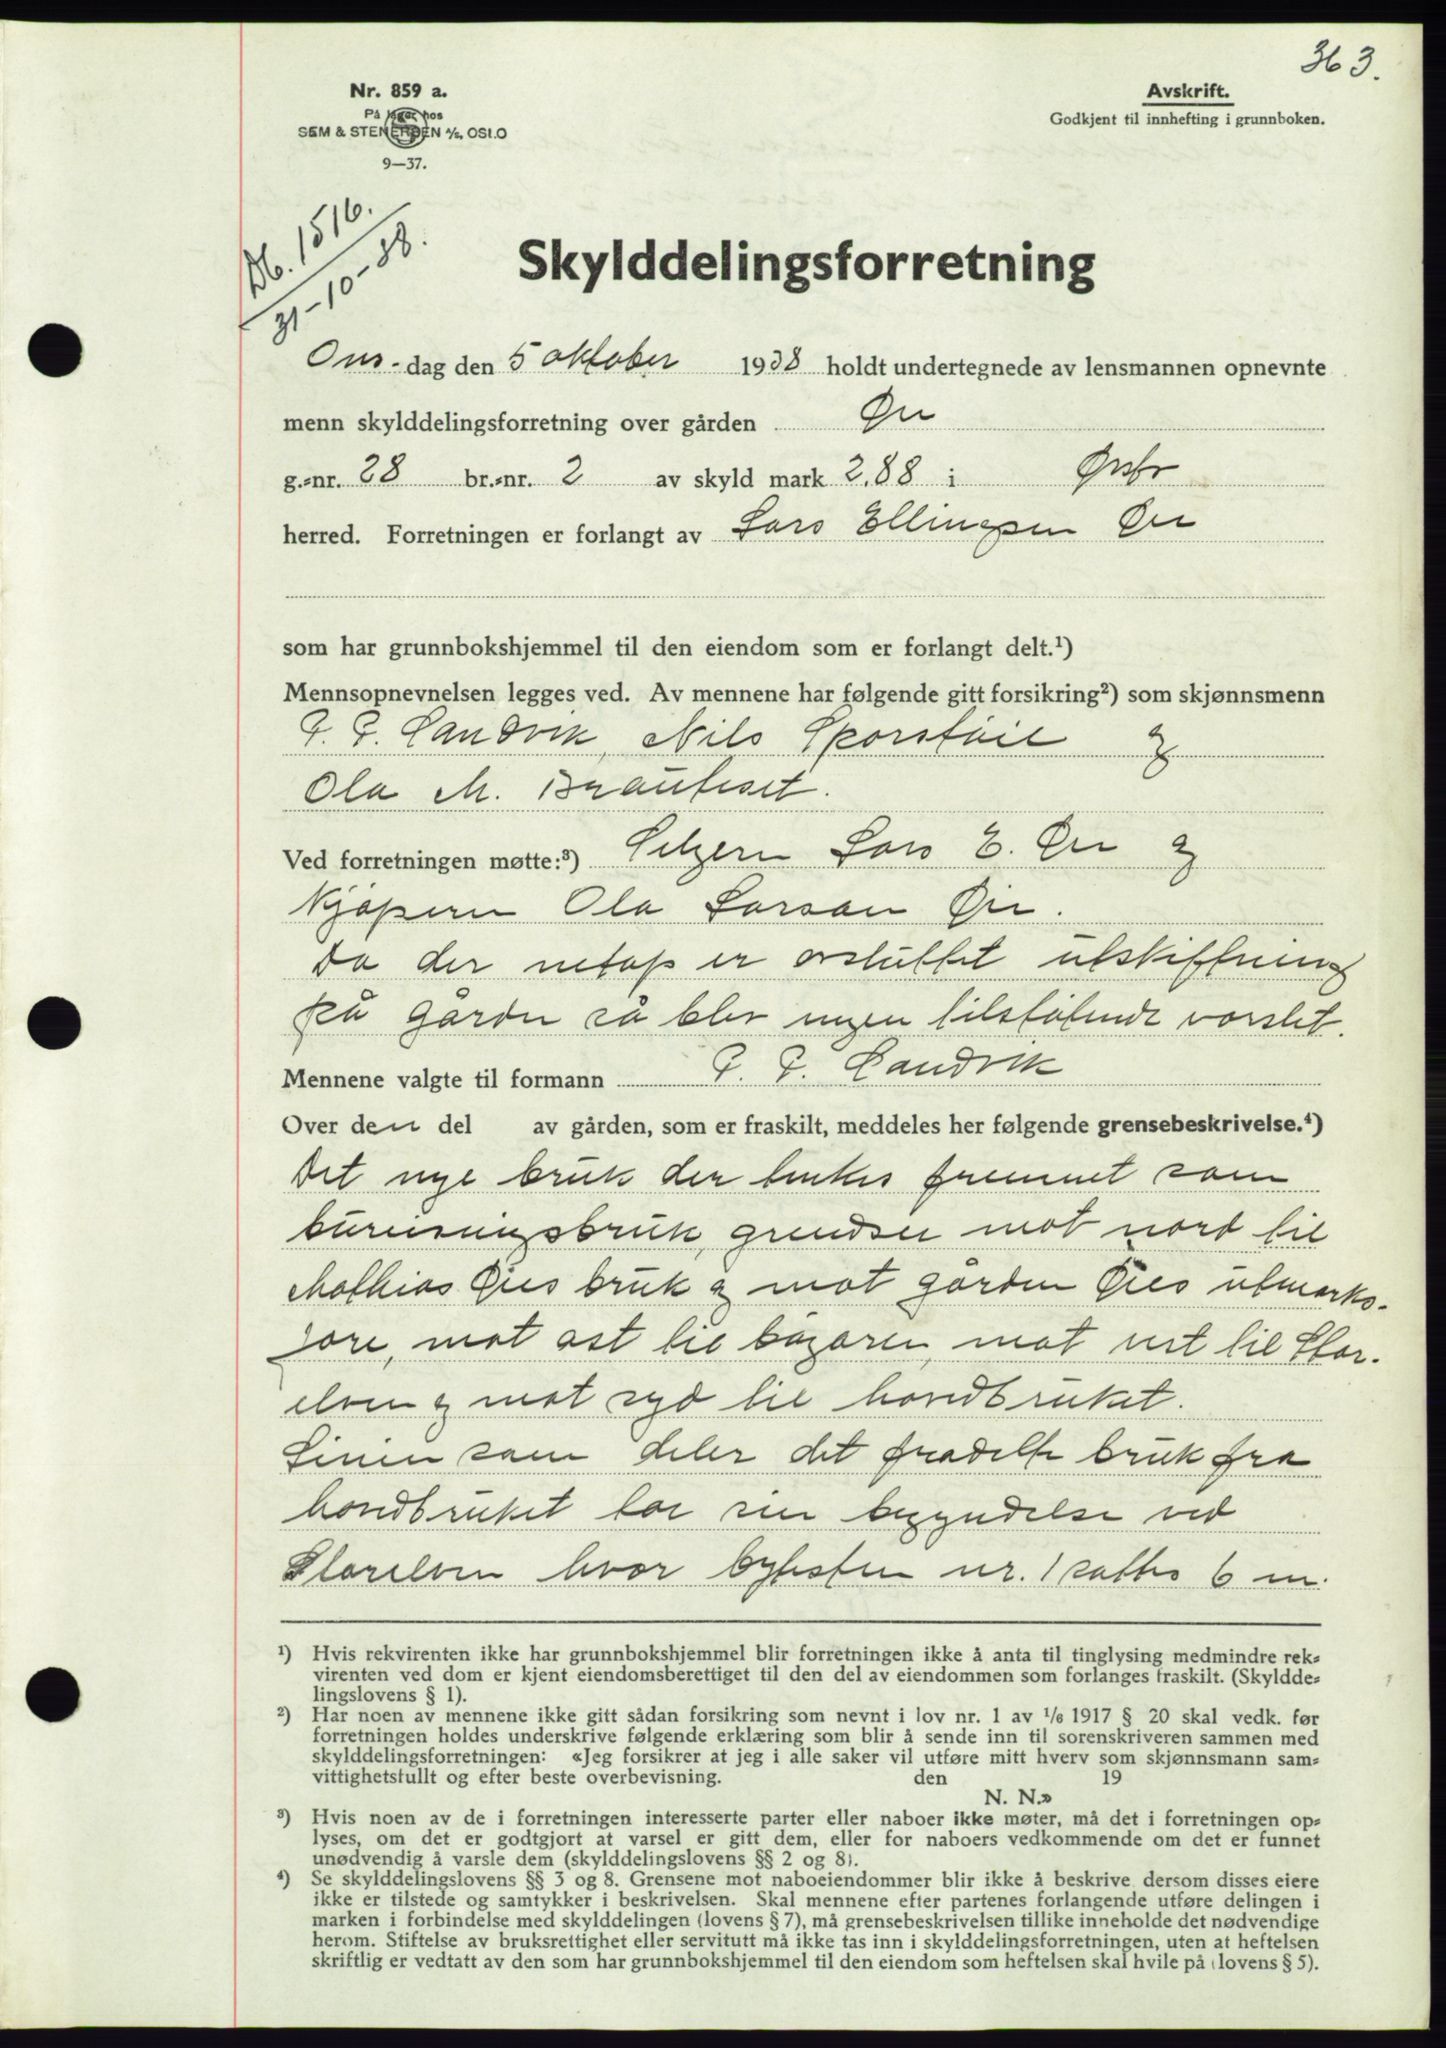 363.
Nr. 859 a.
På lager hos
SEM & STENERSEN A/S, OSLO
9—37.
Avskrift.
Godkjent til innhefting i grunnboken.
Db. 1516.
31-10-38.
Skylddelingsforretning
Ons-dag den 5 oktober 1938 holdt undertegnede av lensmannen opnevnte
menn skylddelingsforretning over gården Øie
g.=nr. 28 br.=nr. 2 av skyld mark 2,88 i
herred. Forretningen er forlangt av Lars Ellingsen Øie
som har grunnbokshjemmel til den eiendom som er forlangt delt.¹)
Mennsopnevnelsen legges ved. Av mennene har følgende gitt forsikring²) som skjønnsmenn
P. P. Sandvik, Nils Sporstøil og
Ola M. Brauteset.
Ved forretningen møtte:³) Selgeren Lars E. Øie og
Kjøperen Ola Larsen Øie.
Da der netop er avsluttet utskiftning
på garden så blev ingen tilstøtende varslet.
Mennene valgte til formann P. P. Sandvik
Over den del av gården, som er fraskilt, meddeles her følgende grensebeskrivelse.⁴)
Det nye bruk der tenkes fremmet som
bureisningsbruk, grendser mot nord til
Mathias Øies bruk og mot gården Øies utmarks-
jore, mot øst til bøgaren, mot vest til Stor-
elven og mot syd til hovedbruket.
Linien som deler det fradelte bruk fra
hovedbruket tar sin begyndelse ved
Storelven hvor bytesten nr. 1 sattes 6 m.
¹) Hvis rekvirenten ikke har grunnbokshjemmel blir forretningen ikke å anta til tinglysing medmindre rek=
virenten ved dom er kjent eiendomsberettiget til den del av eiendommen som forlanges fraskilt. (Skyldde=
lingslovens § 1).
²) Har noen av mennene ikke gitt sådan forsikring som nevnt i lov nr. 1 av 1/6 1917 § 20 skal vedk. før
forretningen holdes underskrive følgende erklæring som blir å sende inn til sorenskriveren sammen med
skylddelingsforretningen: «Jeg forsikrer at jeg i alle saker vil utføre mitt hverv som skjønnsmann sam=
vittighetsfullt og efter beste overbevisning. den 19
N. N.»
³) Hvis noen av de i forretningen interesserte parter eller naboer ikke møter, må det i forretningen op=
lyses, om det er godtgjort at varsel er gitt dem, eller for naboers vedkommende om det er funnet
unødvendig å varsle dem (skylddelingslovens §§ 2 og 8).
⁴) Se skylddelingslovens §§ 3 og 8. Grensene mot naboeiendommer blir ikke å beskrive dersom disses eiere
ikke er tilstede og samtykker i beskrivelsen. Skal mennene efter partenes forlangende utføre delingen i
marken i forbindelse med skylddelingen (lovens § 7), må grensebeskrivelsen tillike inneholde det nødvendige
herom. Stiftelse av bruksrettighet eller servitutt må ikke tas inn i skylddelingsforretningen, uten at heftelsen
skriftlig er vedtatt av den som har grunnbokshjemmel til den eiendom som heftelsen skal hvile på (lovens § 5).